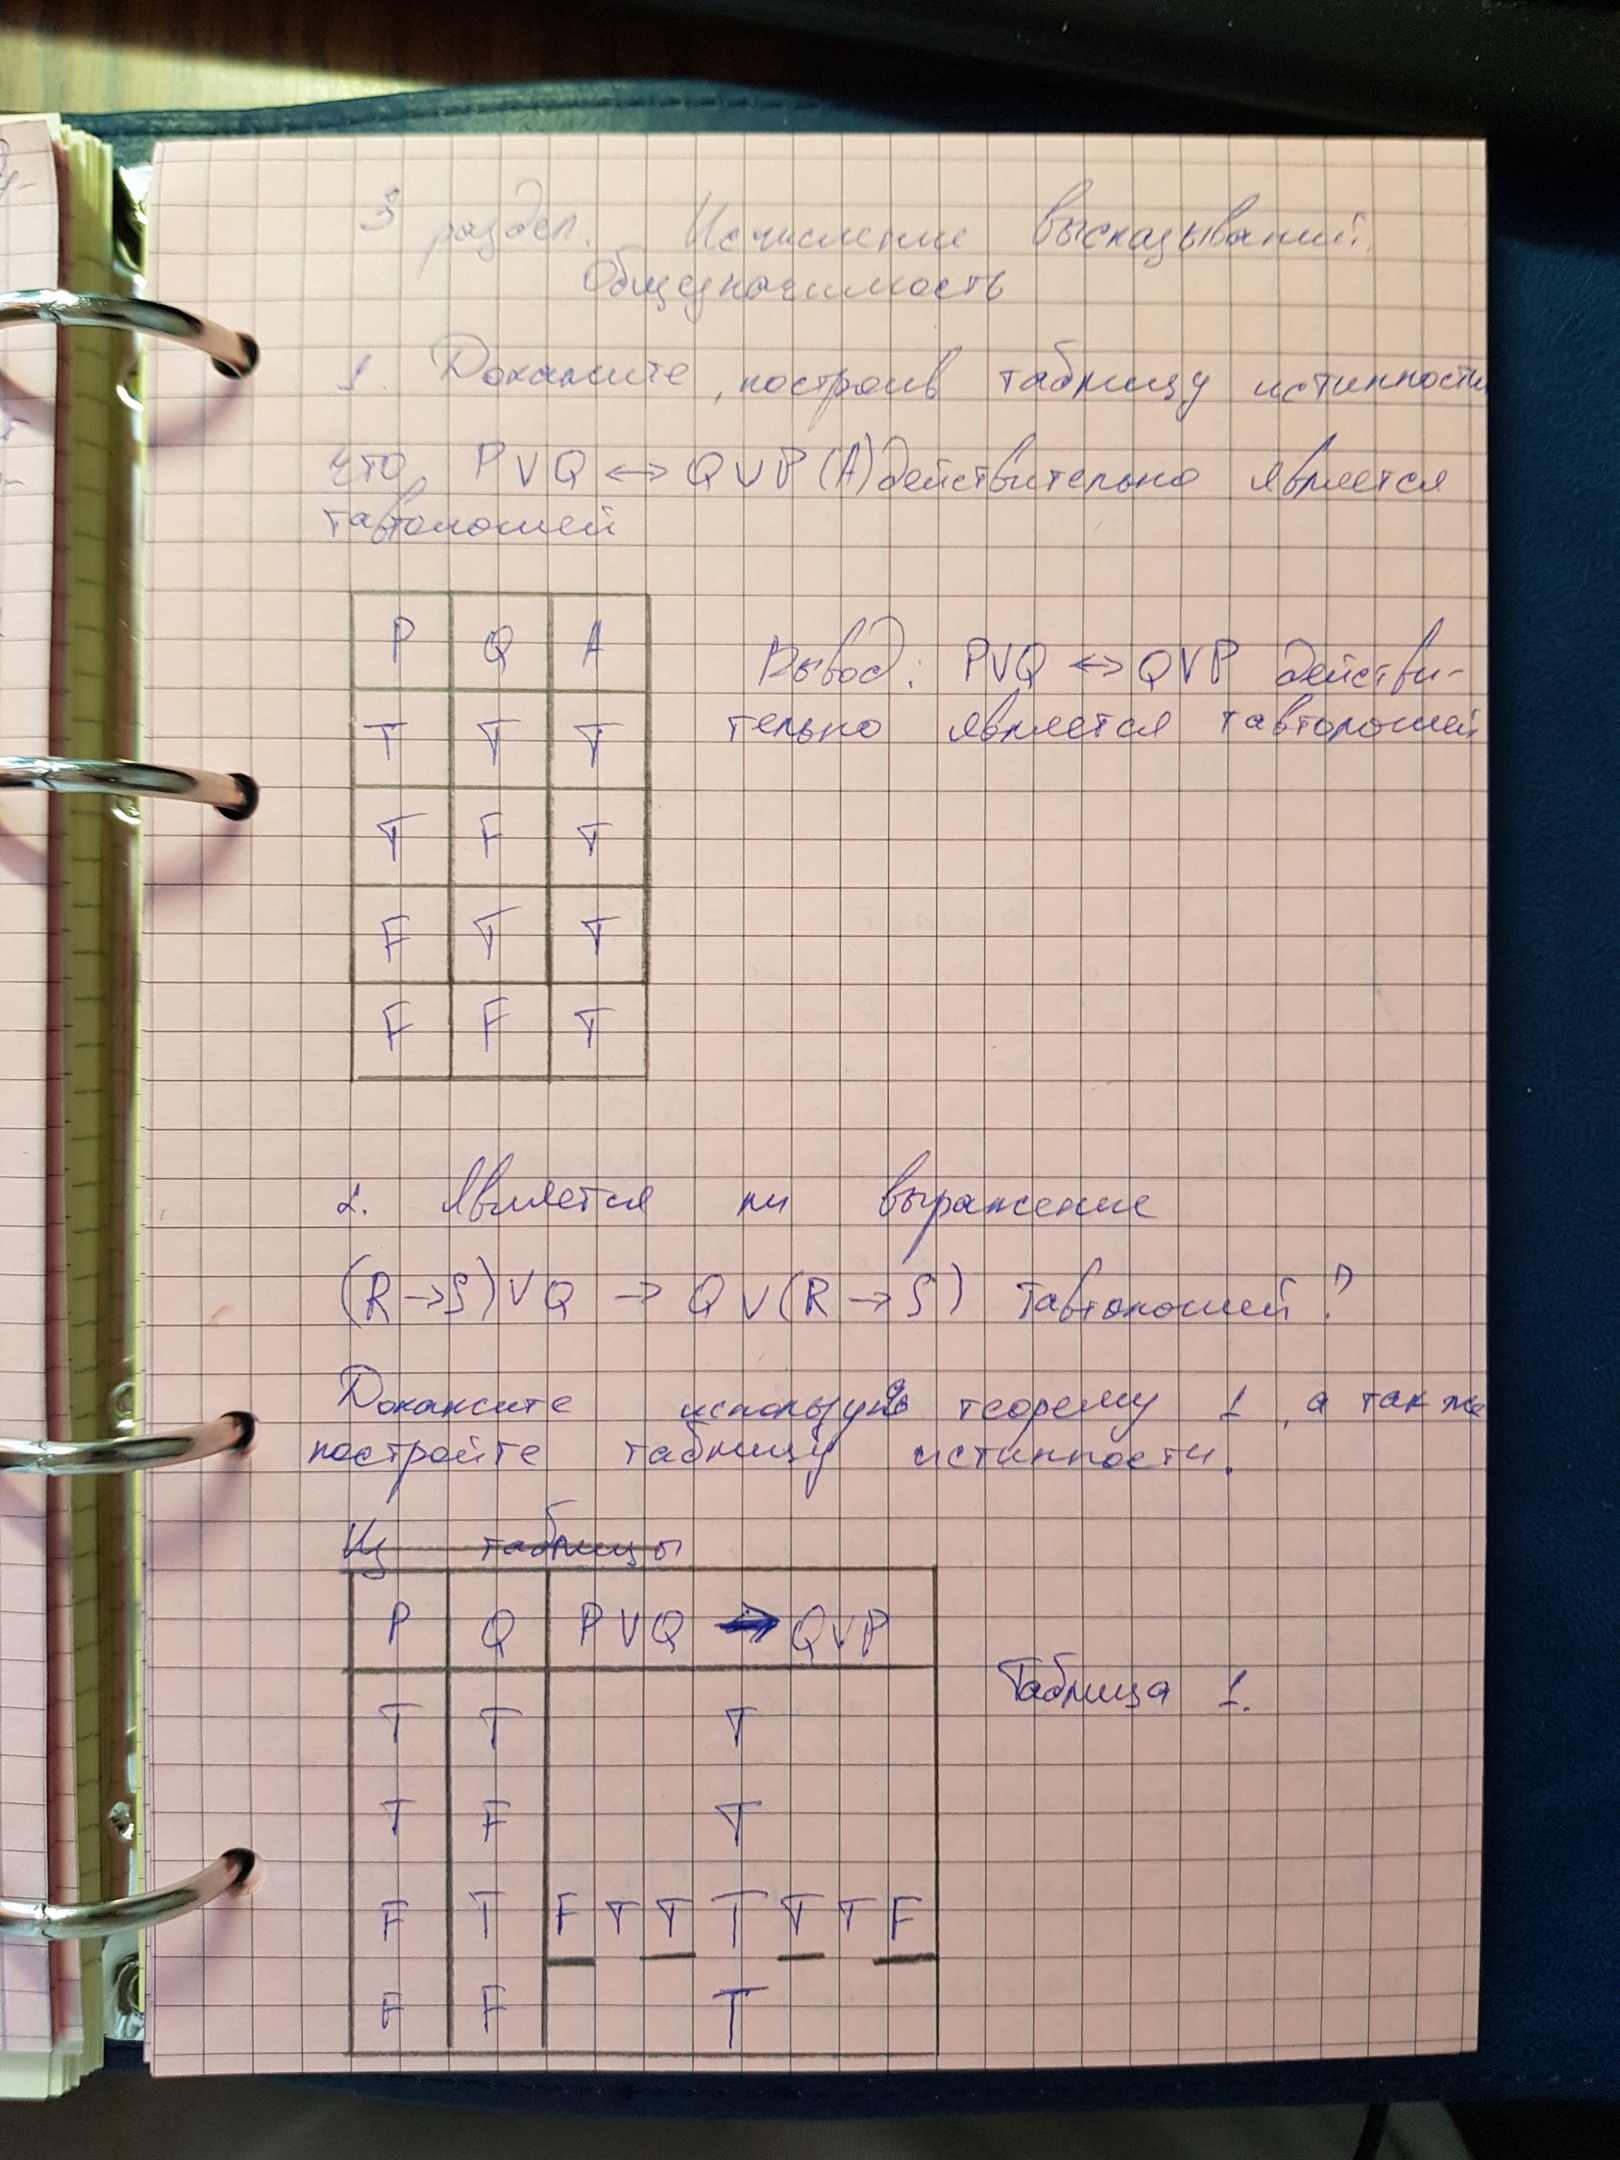 3 раздел. Исчисление высказываний.
Общезначимость
1. Докажите, построив таблицу истинности
что, P∨Q ↔ Q∨P (A) действительно является
тавтологией
P Q A
T T T
T F T
F T T
F F T
Вывод: P∨Q ↔ Q∨P действи-
тельно является тавтологией
2. Является ли выражение
(R→S)∨Q → Q∨(R→S) тавтологией?
Докажите используя теорему 1, а также
постройте таблицу истинности.
Из таблицы
P Q P∨Q → Q∨P
T T T
T F T
F T F T T T T T F
F F T
Таблица 1.